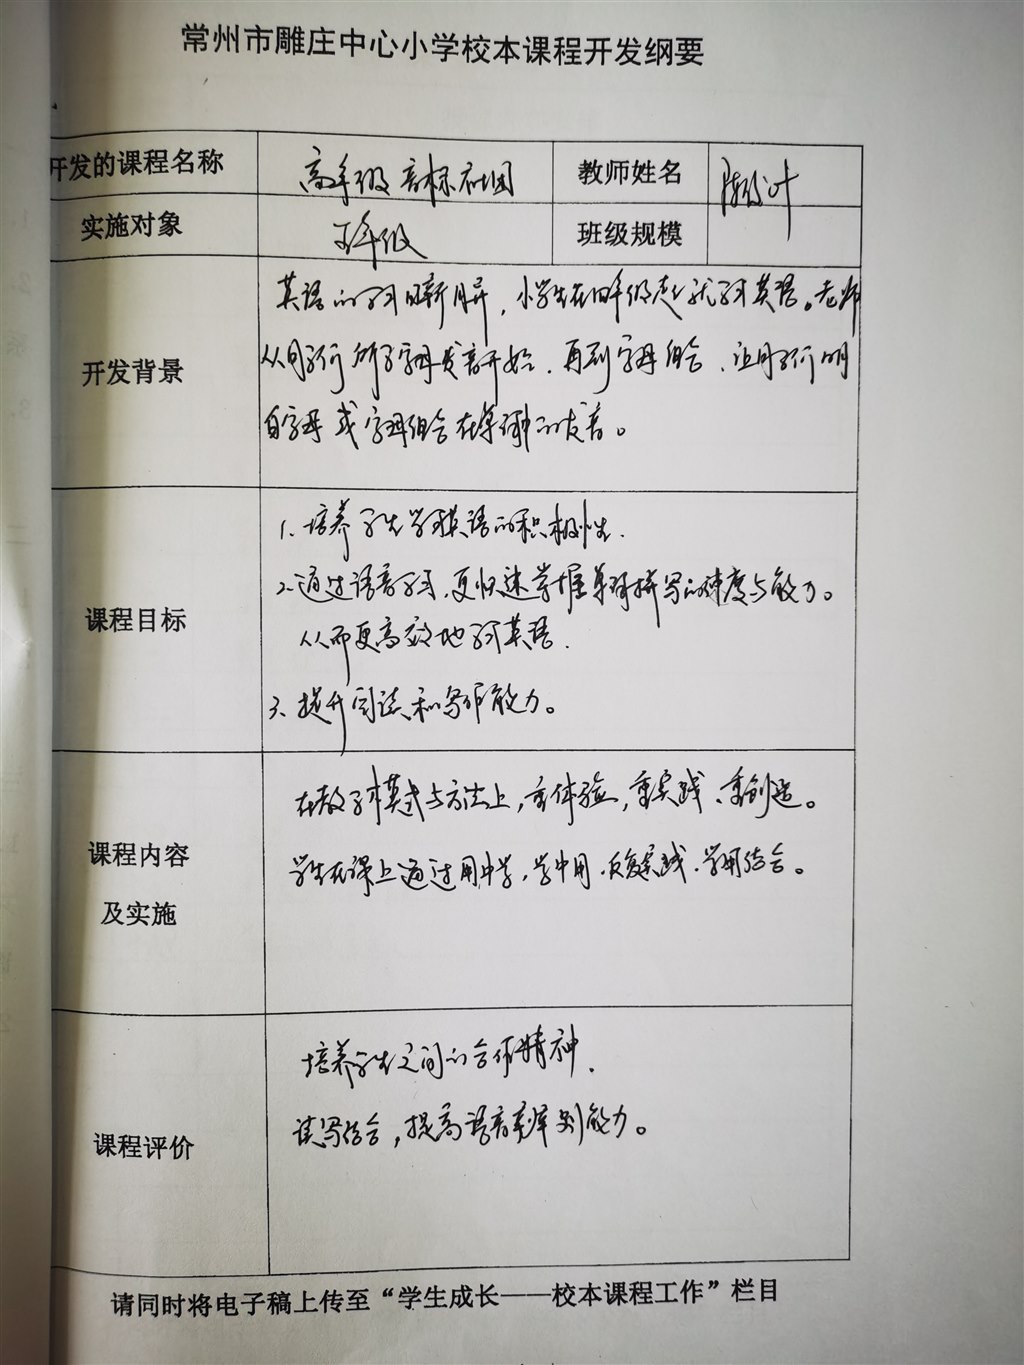 常州市雕庄中心小学校本课程开发纲要
开发的课程名称 高年级音标社团 教师姓名 陈 叶
实施对象 五年级 班级规模
开发背景
英语的学习日新月异，小学生在四年级起就学习英语。老师
从同学们所学字母发音开始、再到字母组合、让同学们明
白字母或字母组合在单词中的发音。
课程目标
1、培养学生学习英语的积极性.
2、通过语音学习、更快速掌握单词拼写的速度与能力。
从而更高效地学习英语.
3、提升阅读和写作能力。
课程内容
及实施
在教学模式与方法上，重体验，重实践、重创造。
学生在课上通过用中学，学中用、反复实践、学用结合。
课程评价
培养学生之间的合作精神、
读写结合，提高语音辨别能力。
请同时将电子稿上传至“学生成长——校本课程工作”栏目